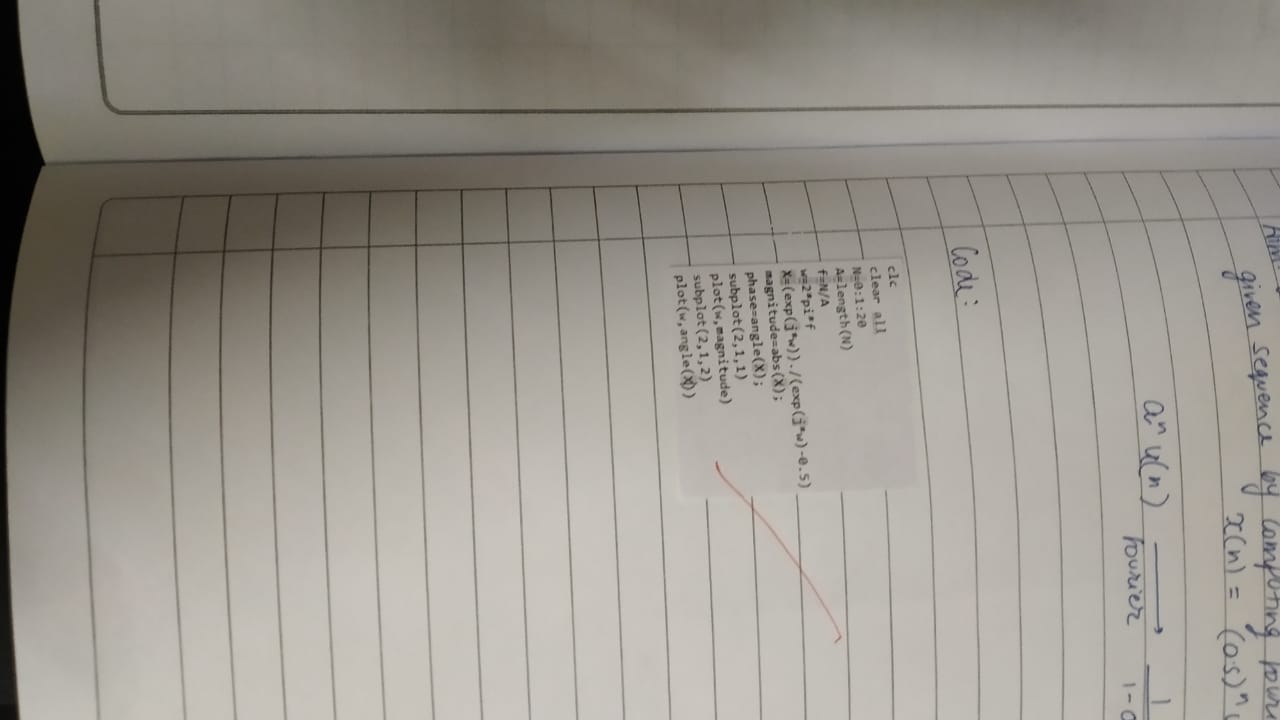 Aim
given sequence by computing
x(n) = (0.5)ⁿ
aⁿ u(n) ⟶ 1
fourier 1-
Code:
clc
clear all
N=0:1:20
A=length(N)
f=N/A
w=2*pi*f
X=(exp(j*w))./(exp(j*w)-0.5)
magnitude=abs(X);
phase=angle(X);
subplot(2,1,1)
plot(w,magnitude)
subplot(2,1,2)
plot(w,angle(X))